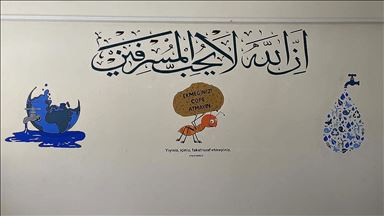 إن الله لا يحب المسرفين
EKMEĞİNİZİ
ÇÖPE
ATMAYIN
Yiyiniz, içiniz, fakat israf etmeyiniz.